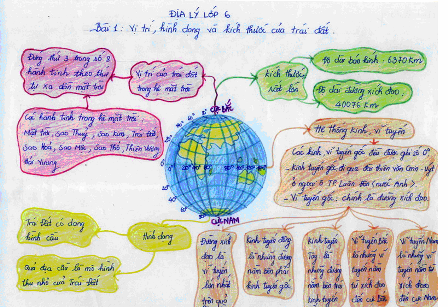 ĐỊA LÝ LỚP 6
Bài 1: Vị trí, hình dạng và kích thước của trái đất.
Đứng thứ 3 trong số 8
hành tinh theo thứ
tự xa dần mặt trời
Vị trí của trái đất
trong hệ mặt trời
Các hành tinh trong hệ mặt trời
Mặt trời, Sao Thuỷ, Sao kim, Trái đất,
Sao Hoả, Sao Mộc, Sao thổ, Thiên Vương
Hải Vương
kích thước
rất lớn
Độ dài bán kính: 6370 Km
Độ dài đường xích đạo,
40076 Km
CỰC BẮC
CỰC NAM
Hệ Thống kinh, vĩ tuyến
Các kinh, vĩ tuyến gốc đều được ghi số 0°
- kinh tuyến gốc đi qua đài thiên văn
ở ngoại ô TP Luân Đôn (nước Anh).
- Vĩ tuyến gốc, chính là đường xích đạo.
Trái Đất có dạng
hình cầu
Hình dạng
Quả địa cầu là mô hình
thu nhỏ của Trái Đất
Đường xích
đạo là
vĩ tuyến
lớn nhất
trên quả
kinh tuyến đông
là những đường
nằm bên phải
kinh tuyến gốc
kinh tuyến
Tây là
những đường
nằm bên trái
kinh tuyến
Vĩ tuyến Bắc
là những vĩ
tuyến nằm
từ xích đạo
đến cực bắc
Vĩ tuyến Nam
là những vĩ
tuyến nằm từ
xích đạo
đến cực Nam